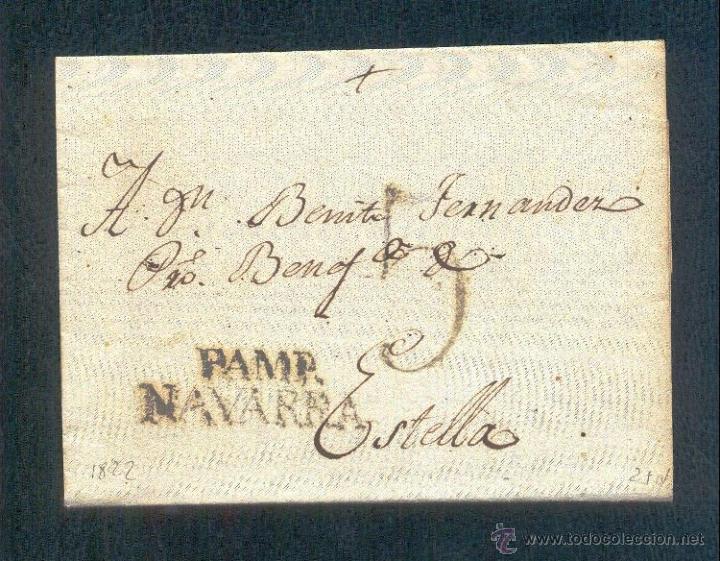 +
A Dn Benito Fernandez
Pro. Benefdo de
5
PAMP.
NAVARRA
Estella
1822
www.todocoleccion.net